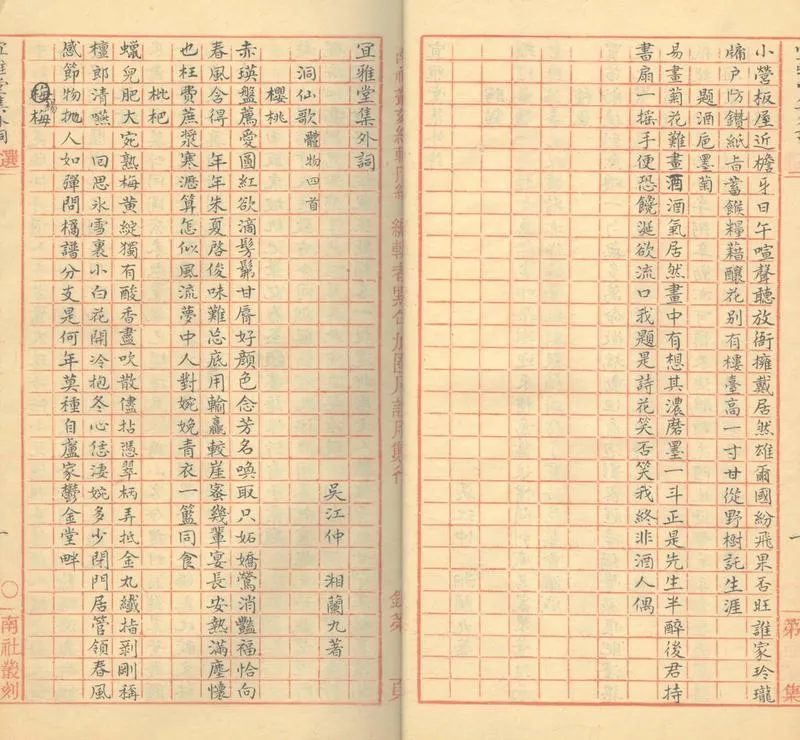 小營板屋近檐牙日午喧聲聽放衙擁戴居然雄爾國紛飛果否旺誰家玲瓏
牖戶防鑽紙旨蓄餱糧藉釀花別有樓臺高一寸甘從野樹託生涯
題酒巵墨菊
易畫菊花難畫酒酒氣居然畫中有想其濃磨墨一斗正是先生半醉後君持
書扇一搖手便恐饞涎欲流口我題是詩花笑否笑我終非酒人偶
第
集
宜雅堂集外詞
吳江仲 湘蘭九著
洞仙歌 體物四首
櫻桃
赤瑛盤薦愛圓紅欲滴髣髴甘脣好顏色念芳名喚取只妬嬌鶯消豔福恰向
春風含得 年年朱夏啓俊味難忘底用輸贏較崖蜜幾輩宴長安熱滿塵懷
也枉費蔗漿寒瀝算怎似風流夢中人對婉娩青衣一籃同食
枇杷
蠟皃肥大宛熟梅黃綻獨有酸香盡吹散儘拈憑翠柄弄抵金丸纖指剝剛稱
檀郎清嚥 回思氷雪裏小白花開冷抱冬心恁淒婉多少閉門居管領春風
感節物拋人如彈問橘譜分支是何年莫種自盧家鬱金堂畔
楊梅
宜雅堂集外詞
選
一
南社叢刻